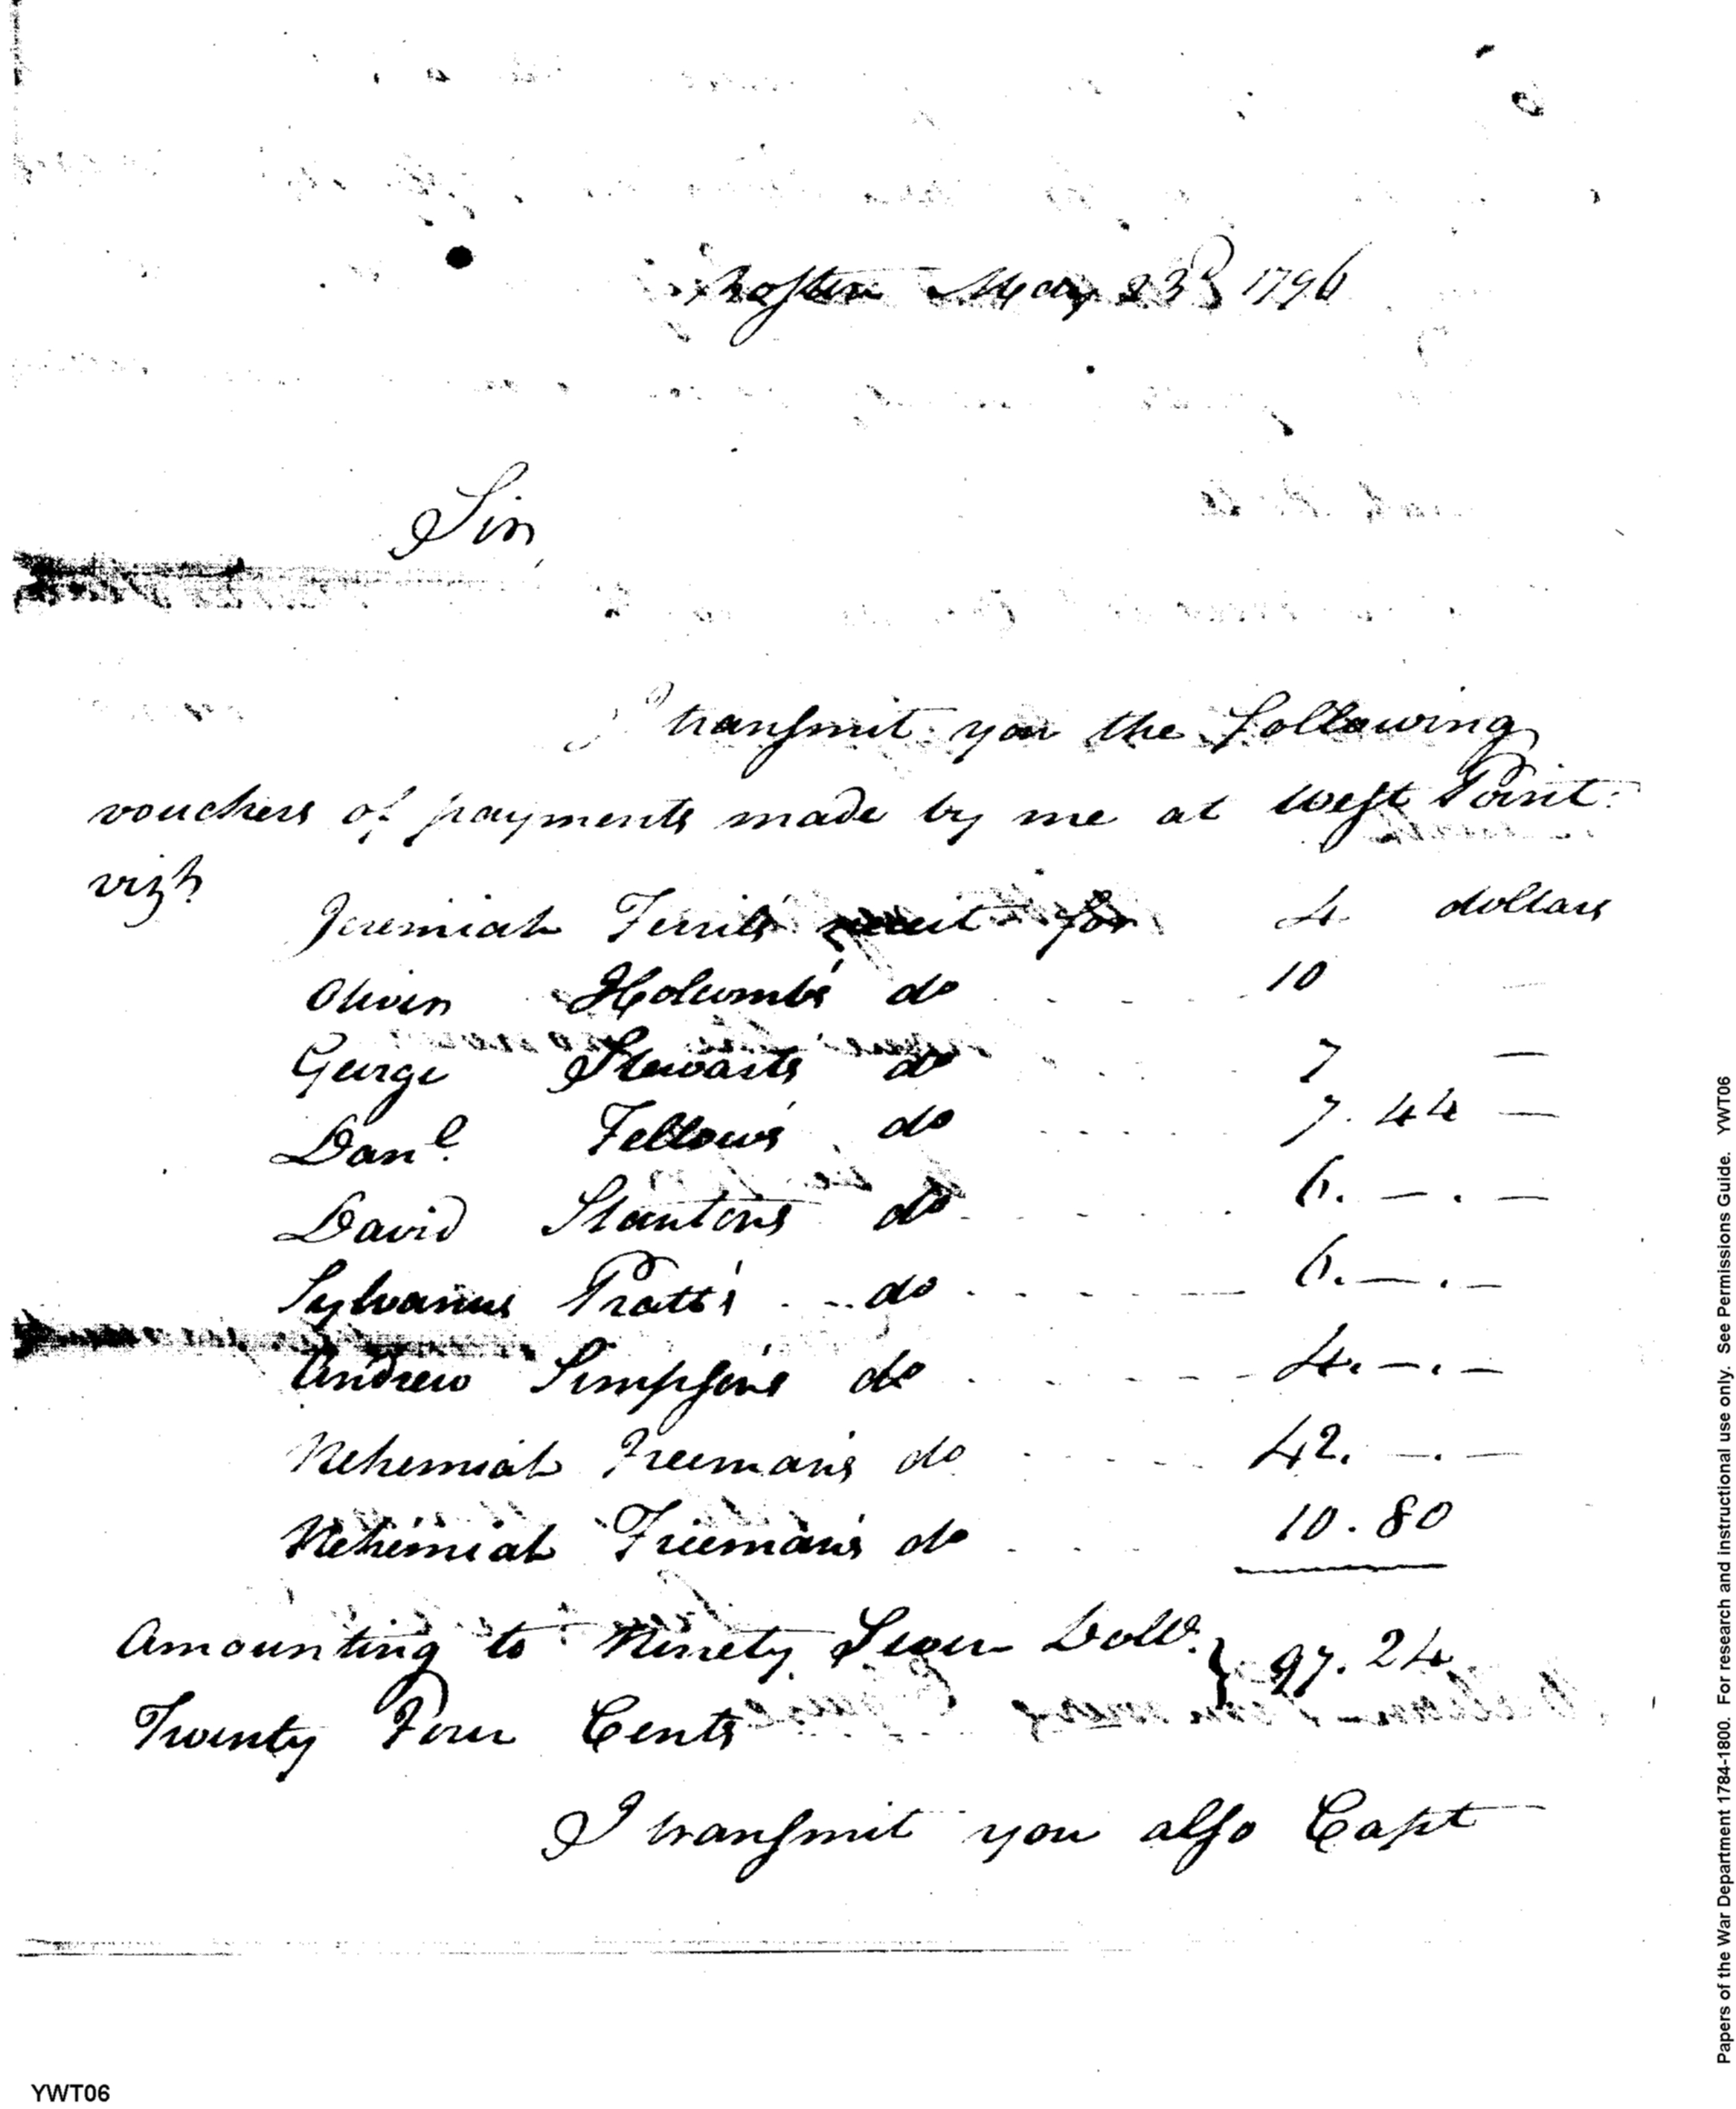 Boston May 23d 1796
Sir,
I transmit you the following
vouchers of payments made by me at West Point.
vizt
Jeremiah Terrils receit for 4 dollars
Oliver Holcombs do 10
George Stewarts do 7 —
Danl. Fellows do 7.44 —
David Stantons do 6. — . —
Sylvanus Pratt's do 6. — . —
Andrew Simpson's do 4. — . —
Nehemiah Freeman's do 42. — . —
Nehemiah Freeman's do 10.80
Amounting to Ninety Seven Dolls. } 97.24
Twenty Four Cents
I transmit you also Capt
YWT06
Papers of the War Department 1784-1800. For research and instructional use only. See Permissions Guide. YWT06